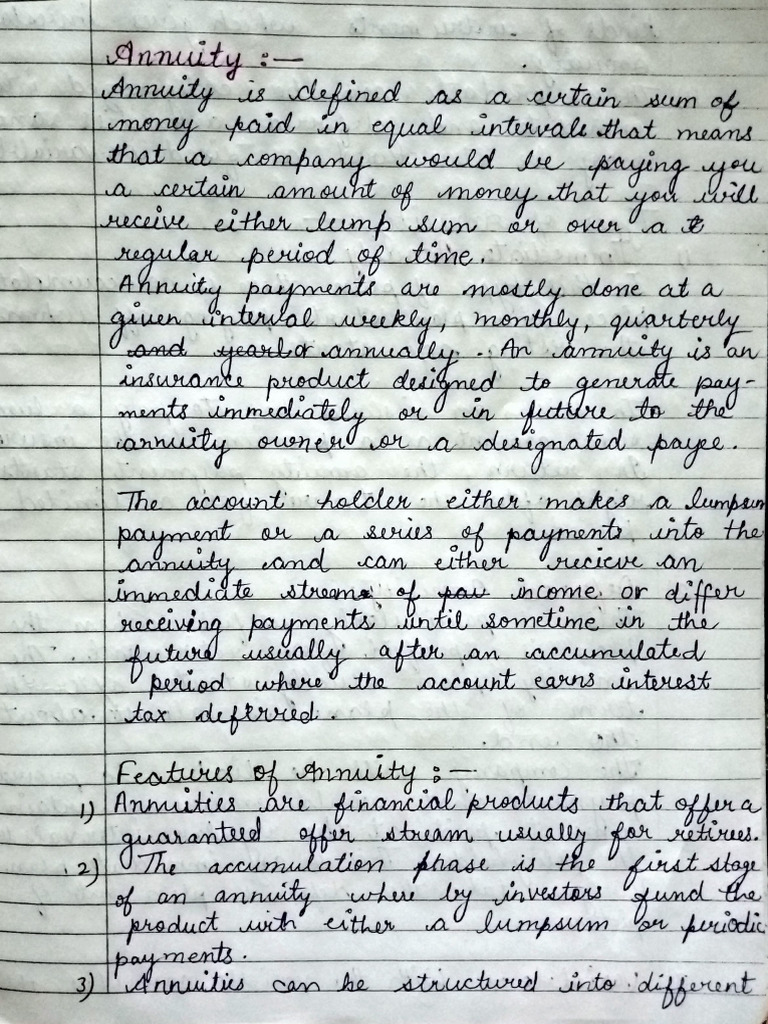 Annuity :—
Annuity is defined as a certain sum of
money paid in equal intervals that means
that a company would be paying you
a certain amount of money that you will
receive either lump sum or over a t
regular period of time.
Annuity payments are mostly done at a
given interval weekly, monthly, quarterly
and yearl or annually. An annuity is an
insurance product designed to generate pay-
ments immediately or in future to the
annuity owner or a designated payee.
The account holder either makes a lumpsum
payment or a series of payments into the
annuity and can either recieve an
immediate stream of pay income or differ
receiving payments until sometime in the
future usually after an accumulated
period where the account earns interest
tax deferred.
Features of Annuity :—
1) Annuities are financial products that offer a
guaranteed offer stream usually for retirees.
2) The accumulation phase is the first stage
of an annuity where by investors fund the
product with either a lumpsum or periodic
payments.
3) Annuities can be structured into different